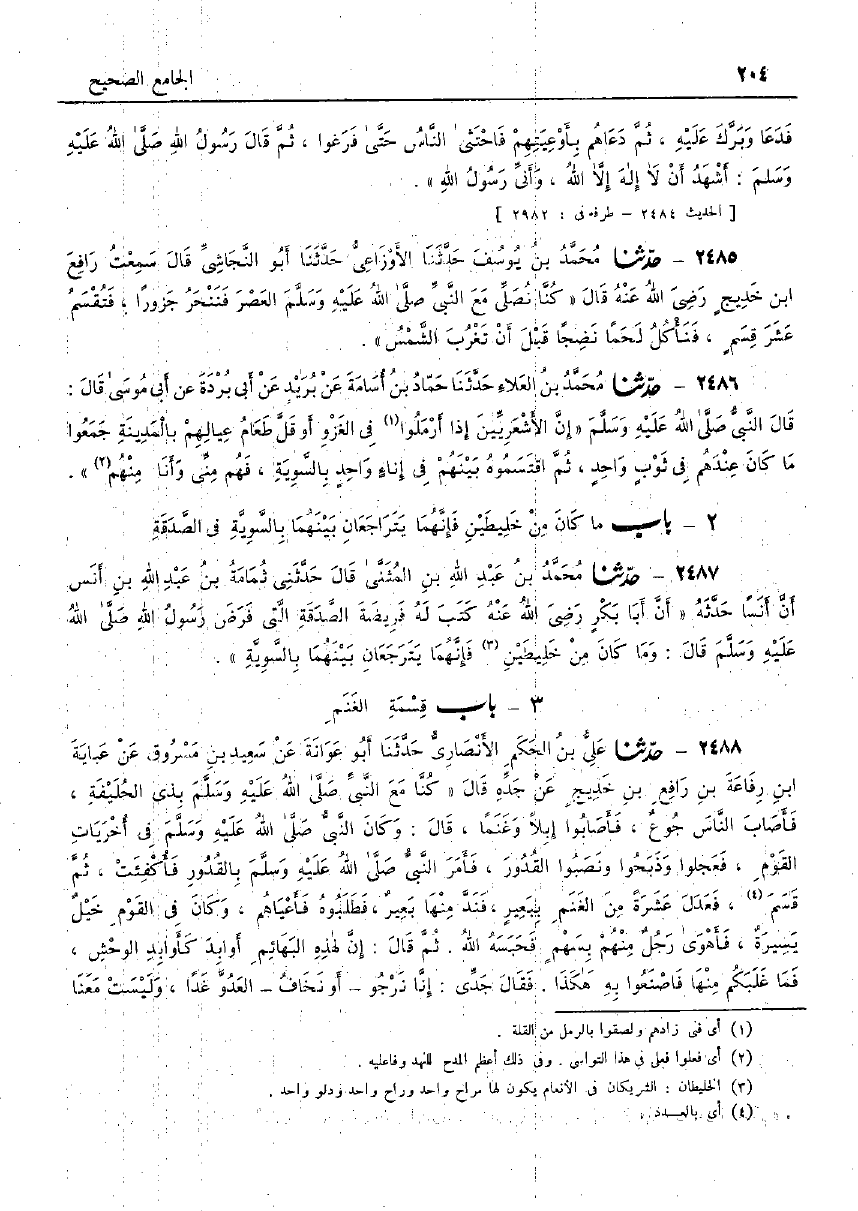 ٢٠٤
الجامع الصحيح
فَدَعَا وَبَرَّكَ عَلَيْهِ ، ثُمَّ دَعَاهُم بِأَوْعِيَتِهِمْ فَاحْتَثَى النَّاسُ حَتَّى فَرَغوا ، ثُمَّ قَالَ رَسُولُ اللهِ صَلَّى اللهُ عَلَيْهِ
وَسَلمَ : أَشْهَدُ أَنْ لَا إِلٰهَ إِلَّا اللهُ ، وَأَنِّي رَسُولُ اللهِ » .
[ الحديث ٢٤٨٤ – طرفه فى : ٢٩٨٢ ]
٢٤٨٥ – حدّثنا مُحَمَّدُ بنُ يُوسُفَ حَدَّثَنَا الأَوْزَاعِىُّ حَدَّثَنَا أَبُو النَّجَاشِىِّ قَالَ سَمِعْتُ رَافِعَ
ابن خَدِيجٍ رَضِىَ اللهُ عَنْهُ قَالَ « كُنَّا نُصَلِّى مَعَ النَّبِىِّ صلَّى اللهُ عَلَيْهِ وَسَلَّمَ العَصْرَ فَنَنْحَرُ جَزُورًا ، فَتُقْسَمُ
عَشَرَ قِسَمٍ ، فَنَأْكُلُ لَحْمًا نَضِجًا قَبْلَ أَنْ تَغْرُبَ الشَّمْسُ » .
٢٤٨٦ – حدّثنا مُحَمَّدُ بنُ العَلاءِ حَدَّثَنَا حَمَّادُ بنُ أُسَامَةَ عَنْ بُرَيْدٍ عَنْ أَبِى بُرْدَةَ عن أَبِى مُوسَىٰ قَالَ :
قَالَ النَّبِىُّ صَلَّى اللهُ عَلَيْهِ وَسَلَّمَ « إِنَّ الأَشْعَرِيِّينَ إِذا أَرْمَلُوا (١) فِى الغَزْوِ أَو قَلَّ طَعَامُ عِيالِهِمْ بِالْمَدِينَةِ جَمَعُوا
مَا كَانَ عِنْدَهُم فِى ثَوْبٍ وَاحِدٍ ، ثُمَّ اقْتَسَمُوهُ بَيْنَهُمْ فِى إِناءٍ وَاحِدٍ بِالسَّوِيَةِ ، فَهُم مِنِّى وَأَنَا مِنْهُم (٢) » .
٢ – باب ما كَانَ مِنْ خَلِيطَيْنِ فَإِنَّهُمَا يَتَرَاجَعَانِ بَيْنَهُمَا بِالسَّوِيَّةِ فى الصَّدَقَةِ
٢٤٨٧ – حدّثنا مُحَمَّدُ بنُ عَبْدِ اللهِ بنِ المُثَنَّى قَالَ حَدَّثَنِى ثُمَامَةُ بنُ عَبْدِ اللهِ بنِ أَنَس
أَنَّ أَنَسًا حَدَّثَهُ « أَنَّ أَبَا بَكْرٍ رَضِىَ اللهُ عَنْهُ كَتَبَ لَهُ فَرِيضَةَ الصَّدَقَةِ الَّتِى فَرَضَ رَسُولُ اللهِ صَلَّى اللهُ
عَلَيْهِ وَسَلَّمَ قَالَ : وَمَا كَانَ مِنْ خَلِيطَيْنِ (٣) فَإِنَّهُمَا يَتَرَجَعَانِ بَيْنَهُمَا بِالسَّوِيَّةِ » .
٣ – باب قِسْمَةِ الغَنَمِ
٢٤٨٨ – حدّثنا عَلِىُّ بنُ الحَكَمِ الأَنْصَارِىُّ حَدَّثَنَا أَبُو عَوَانَةَ عَنْ سَعِيدِ بنِ مَسْرُوقٍ عَنْ عَبايَةَ
ابنِ رِفَاعَةَ بنِ رَافِعِ بنِ خَدِيجٍ عَنْ جَدِّهِ قَالَ « كُنَّا مَعَ النَّبِىِّ صَلَّى اللهُ عَلَيْهِ وَسَلَّمَ بِذِى الحُلَيْفَةِ ،
فَأَصَابَ النَّاسَ جُوعٌ ، فَأَصَابُوا إِبِلاً وَغَنَمًا ، قَالَ : وَكَانَ النَّبِىُّ صَلَّى اللهُ عَلَيْهِ وَسَلَّمَ فِى أُخْرَيَاتِ
القَوْمِ ، فَعَجلوا وَذَبَحُوا ونَصَبُوا القُدُورَ ، فَأَمَرَ النَّبِىُّ صَلَّى اللهُ عَلَيْهِ وَسَلَّمَ بِالقُدُورِ فَأُكْفِئَتْ ، ثُمَّ
قَسَمَ (٤) ، فَعَدَلَ عَشَرَةً مِنَ الغَنَمِ بِبَعِيرٍ ، فَنَدَّ مِنْهَا بَعِيرٌ ، فَطَلَبُوهُ فَأَعْيَاهُم ، وَكَانَ فِى القَوْمِ خَيْلٌ
يَسِيرَةٌ ، فَأَهْوَىٰ رَجُلٌ مِنْهُم بِسَهْمٍ فَحَبَسَهُ اللهُ . ثُمَّ قَالَ : إِنَّ لِهٰذِهِ البَهَائِمِ أَوابِدَ كَأَوابِدِ الوَحْشِ ،
فَمَا غَلَبَكُم مِنْهَا فَاصْنَعُوا بِهِ هَكَذَا . فَقَالَ جَدِّى : إِنَّا نَرْجُو – أَو نَخَافُ – العَدُوَّ غَدًا ، وَلَيْسَتْ مَعَنَا
(١) أى فنى زادهم ولصقوا بالرمل من القلة .
(٢) أى فعلوا فعلى فى هذا التواسى . وفى ذلك أعظم المدح للنهد وفاعليه .
(٣) الخليطان : الشريكان فى الأنعام يكون لها مراح واحد وراح واحد ودلو واحد .
(٤) أى بالعدد .